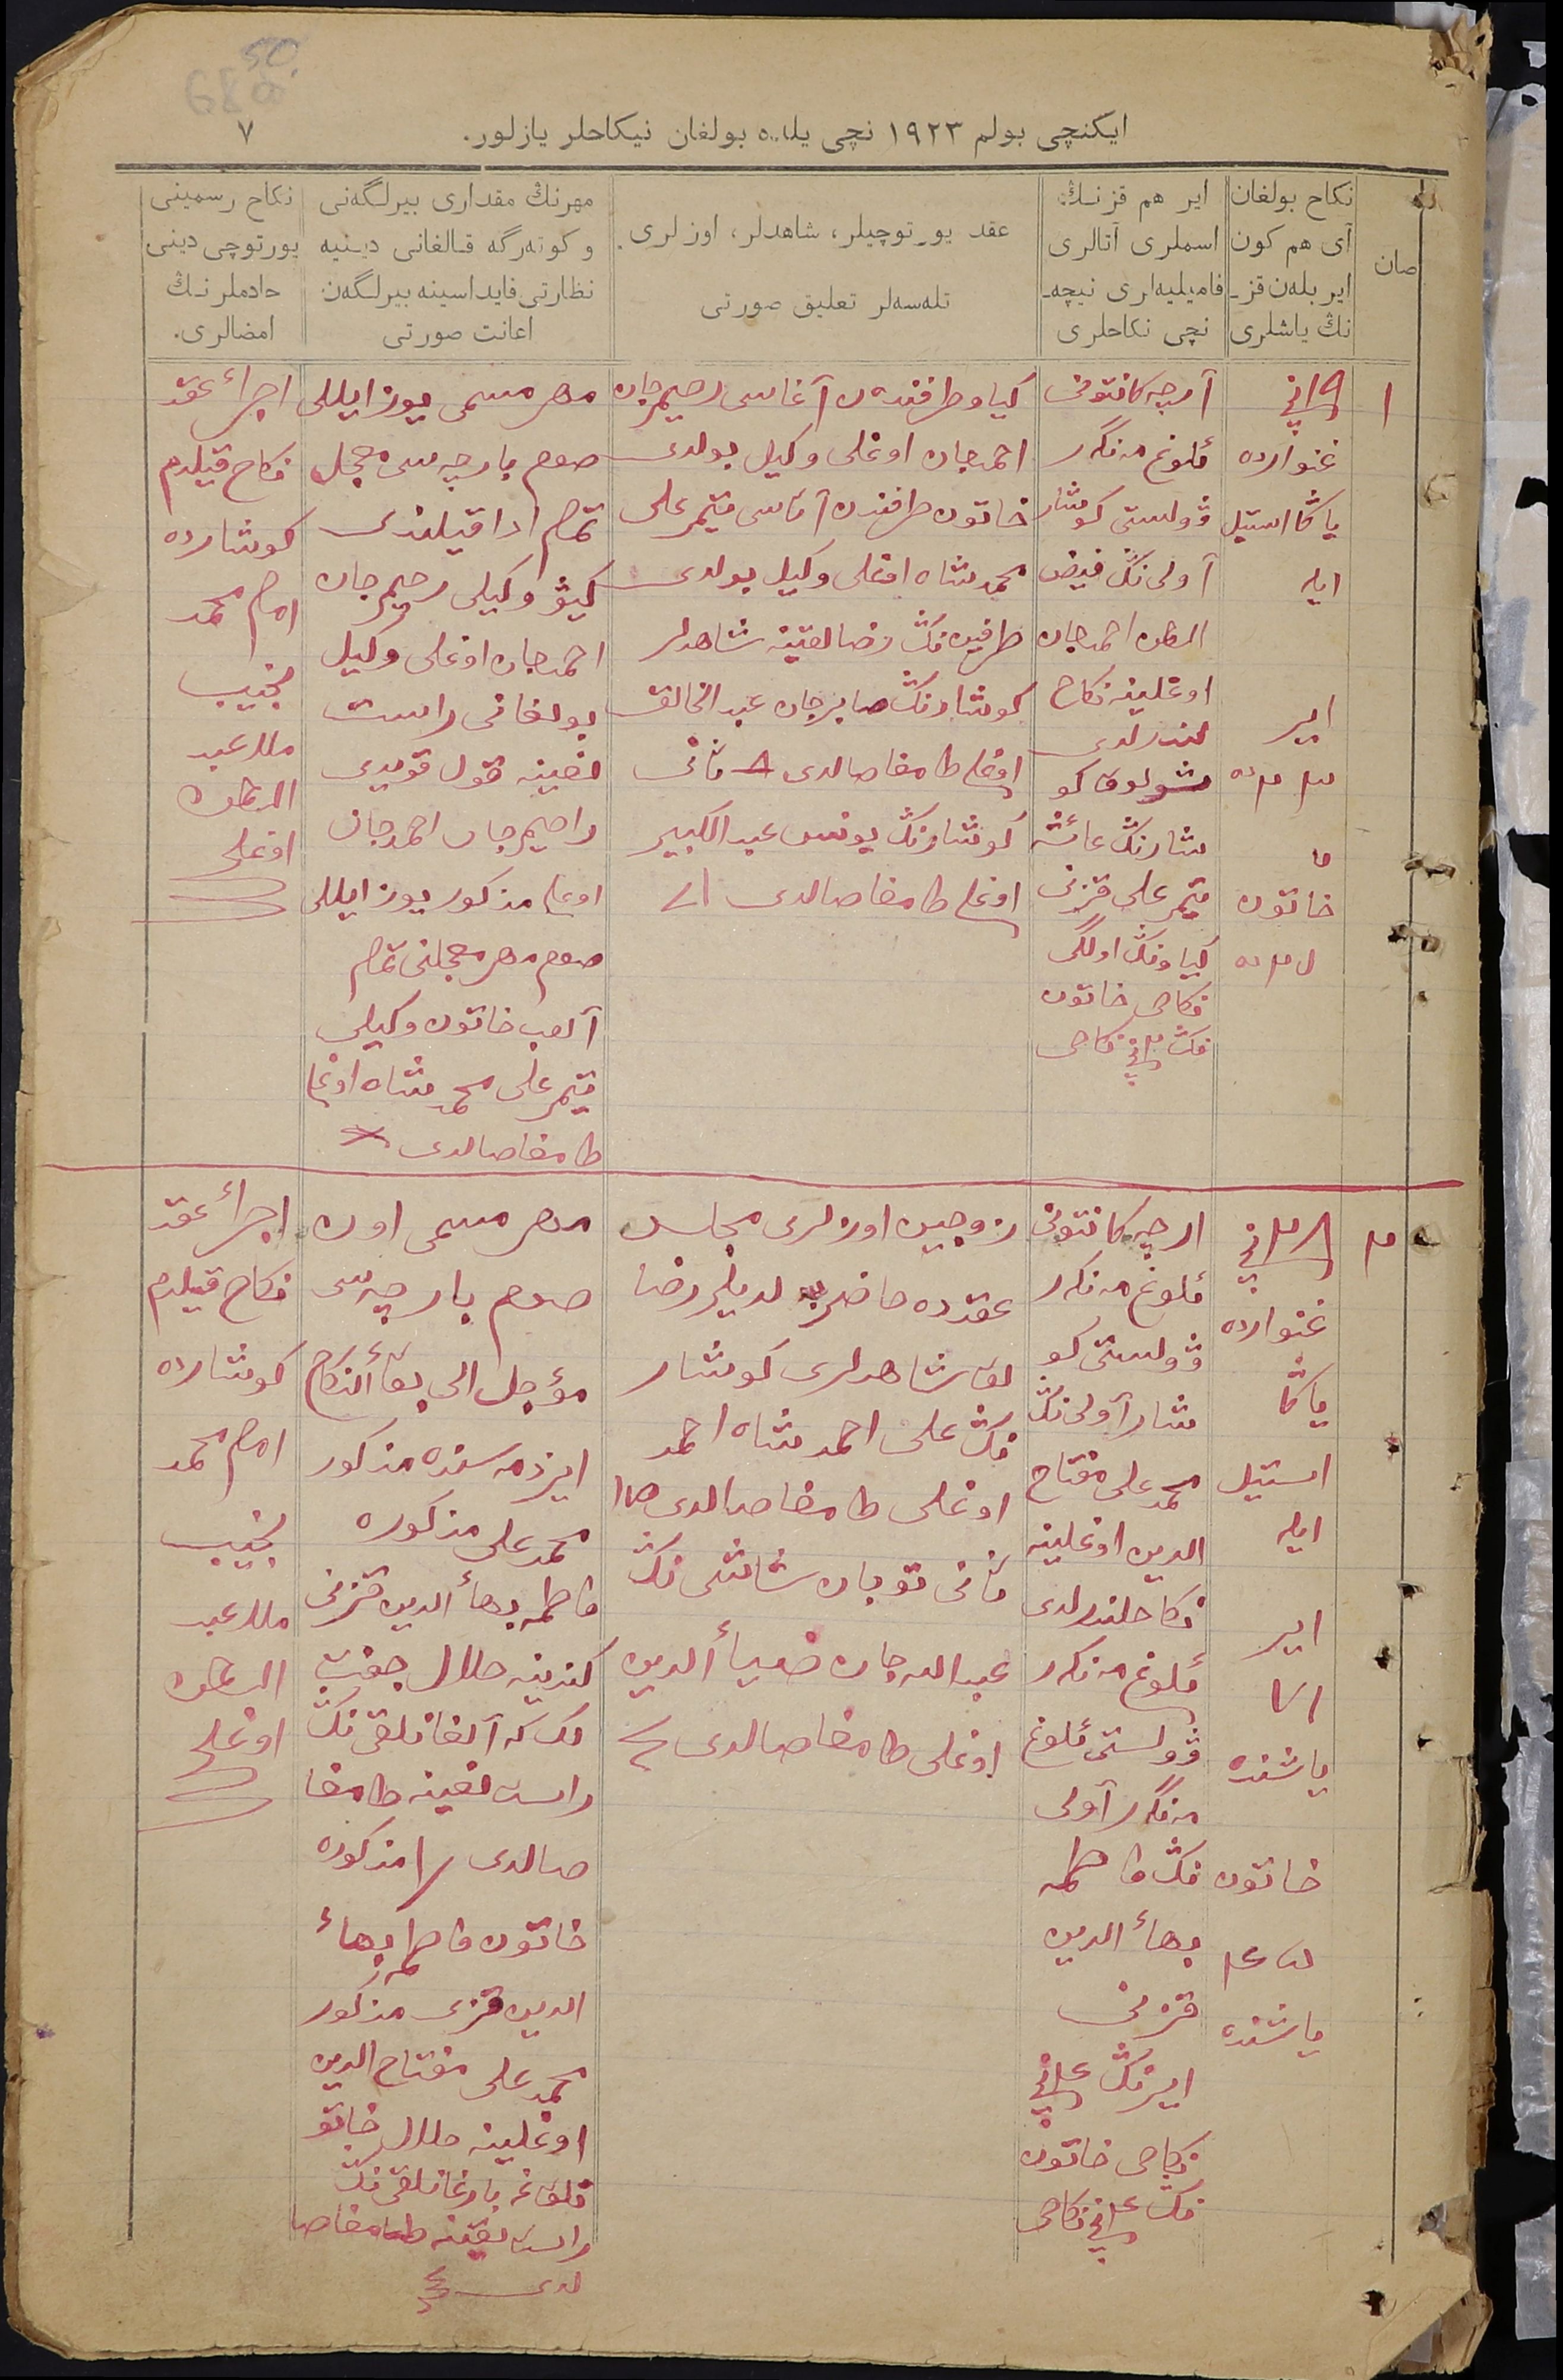 50
ایکنچی بولم ١٩٢٣ نچی یلده بولغان نیکاحلر یازلور.
٧
صان
نکاح بولغان
آی هم کون
ایر بلەن قز ـ
نڭ یاشلری
ایر هم قزنـڭ
اسملری آتالری
فامیلیەلری نیچەـ
نچی نکاحلری
عقد یورتوچیلر، شاهدلر، اوزلری.
تلەسەلر تعلیق صورتی
مهرنڭ مقداری بیرلگەنی
و کوتەرگە قالغانی دینیه
نظارتی فایداسینه بیرلگەن
اعانت صورتی
نکاح رسمینی
یورتوچی دینی
خادملرنـڭ
امضالری.
١
غنوارده
یاڭا استیل
ایله
ایر
خاتون
آرچه کانتونی
ئلوغ منگر
ڤولستی کوشار
آولی نڭ فیض
الرحمن احمدجان
اوغلینه نکاح
لندرلدی
شولوق کو
شارنڭ عائشه
تیمرعلی قزنی
کیاونڭ اولگی
نکاحی خاتون
نڭ نکاحی
کیاو طرفندن آغاسی رحیم جان
احمدجان اوغلی وکیل بولدی
خاتون طرفندن آتاسی تیمرعلی
محمدشاه اوغلی وکیل بولدی
طرفین نڭ رضالقینه شاهدلر
کوشارنڭ صابرجان عبدالخالق
اوغلی طامغا صالدی ثانی
کوشارنڭ یونس عبدالکبیر
اوغلی طامغا صالدی
مهر مسمی یوز ایللی
صوم بارچەسی معجل
تمام ادا قیلندی
کیاو وکیلی رحیم جان
احمدجان اوغلی وکیل
بولغانی راست
لغینه قول قویدی
راحیم جان احمدجان
اوغلی مذکور یوز ایللی
صوم مهر معجلنی تمام
آلوب خاتون وکیلی
تیمرعلی محمدشاه اوغلی
طامغا صالدی
اجراء عقد
نکاح قیلدم
کوشارده
امام محمد
نجیب
ملا عبد
الرحمن
اوغلی
٢
غنوارده
یاڭا
استیل
ایله
ایر
یاشنده
خاتون
یاشنده
ارچه کانتونی
ئلوغ منگر
ڤولستی کو
شار آولی نڭ
محمدعلی مفتاح
الدین اوغلینه
نکاحلندرلدی
ئلوغ منگر
ڤولستی ئلوغ
منگر آولی
نڭ فاطمه
بهاء الدین
قزنی
ایرنڭ
نکاحی خاتون
نڭ نکاحی
زوجین اوزلری مجلس
عقدده حاضر بولدیلر رضا
لق شاهدلری کوشار
نڭ علی احمدشاه احمد
اوغلی طامغا صالدی
ثانی توبان شاشی نڭ
عبدالله جان ضیاء الدین
اوغلی طامغا صالدی
مهر مسمی اون
صوم بارچەسی
مؤجل الی بقاء النکاح
ایر ذمەسنده مذکور
محمدعلی مذکوره
فاطمه بهاء الدین قزنی
کندینه حلال جفت
لککە آلغانلقی نڭ
راست لغینه طامغا
صالدی مذکوره
خاتون فاطمه بهاء
الدین قزی مذکور
محمدعلی مفتاح الدین
اوغلینه حلال خاتو
نلقغه بارغانلقی نڭ
راست لقینه طامغا صا
لدی
اجراء عقد
نکاح قیلدم
کوشارده
امام محمد
نجیب
ملا عبد
الرحمن
اوغلی